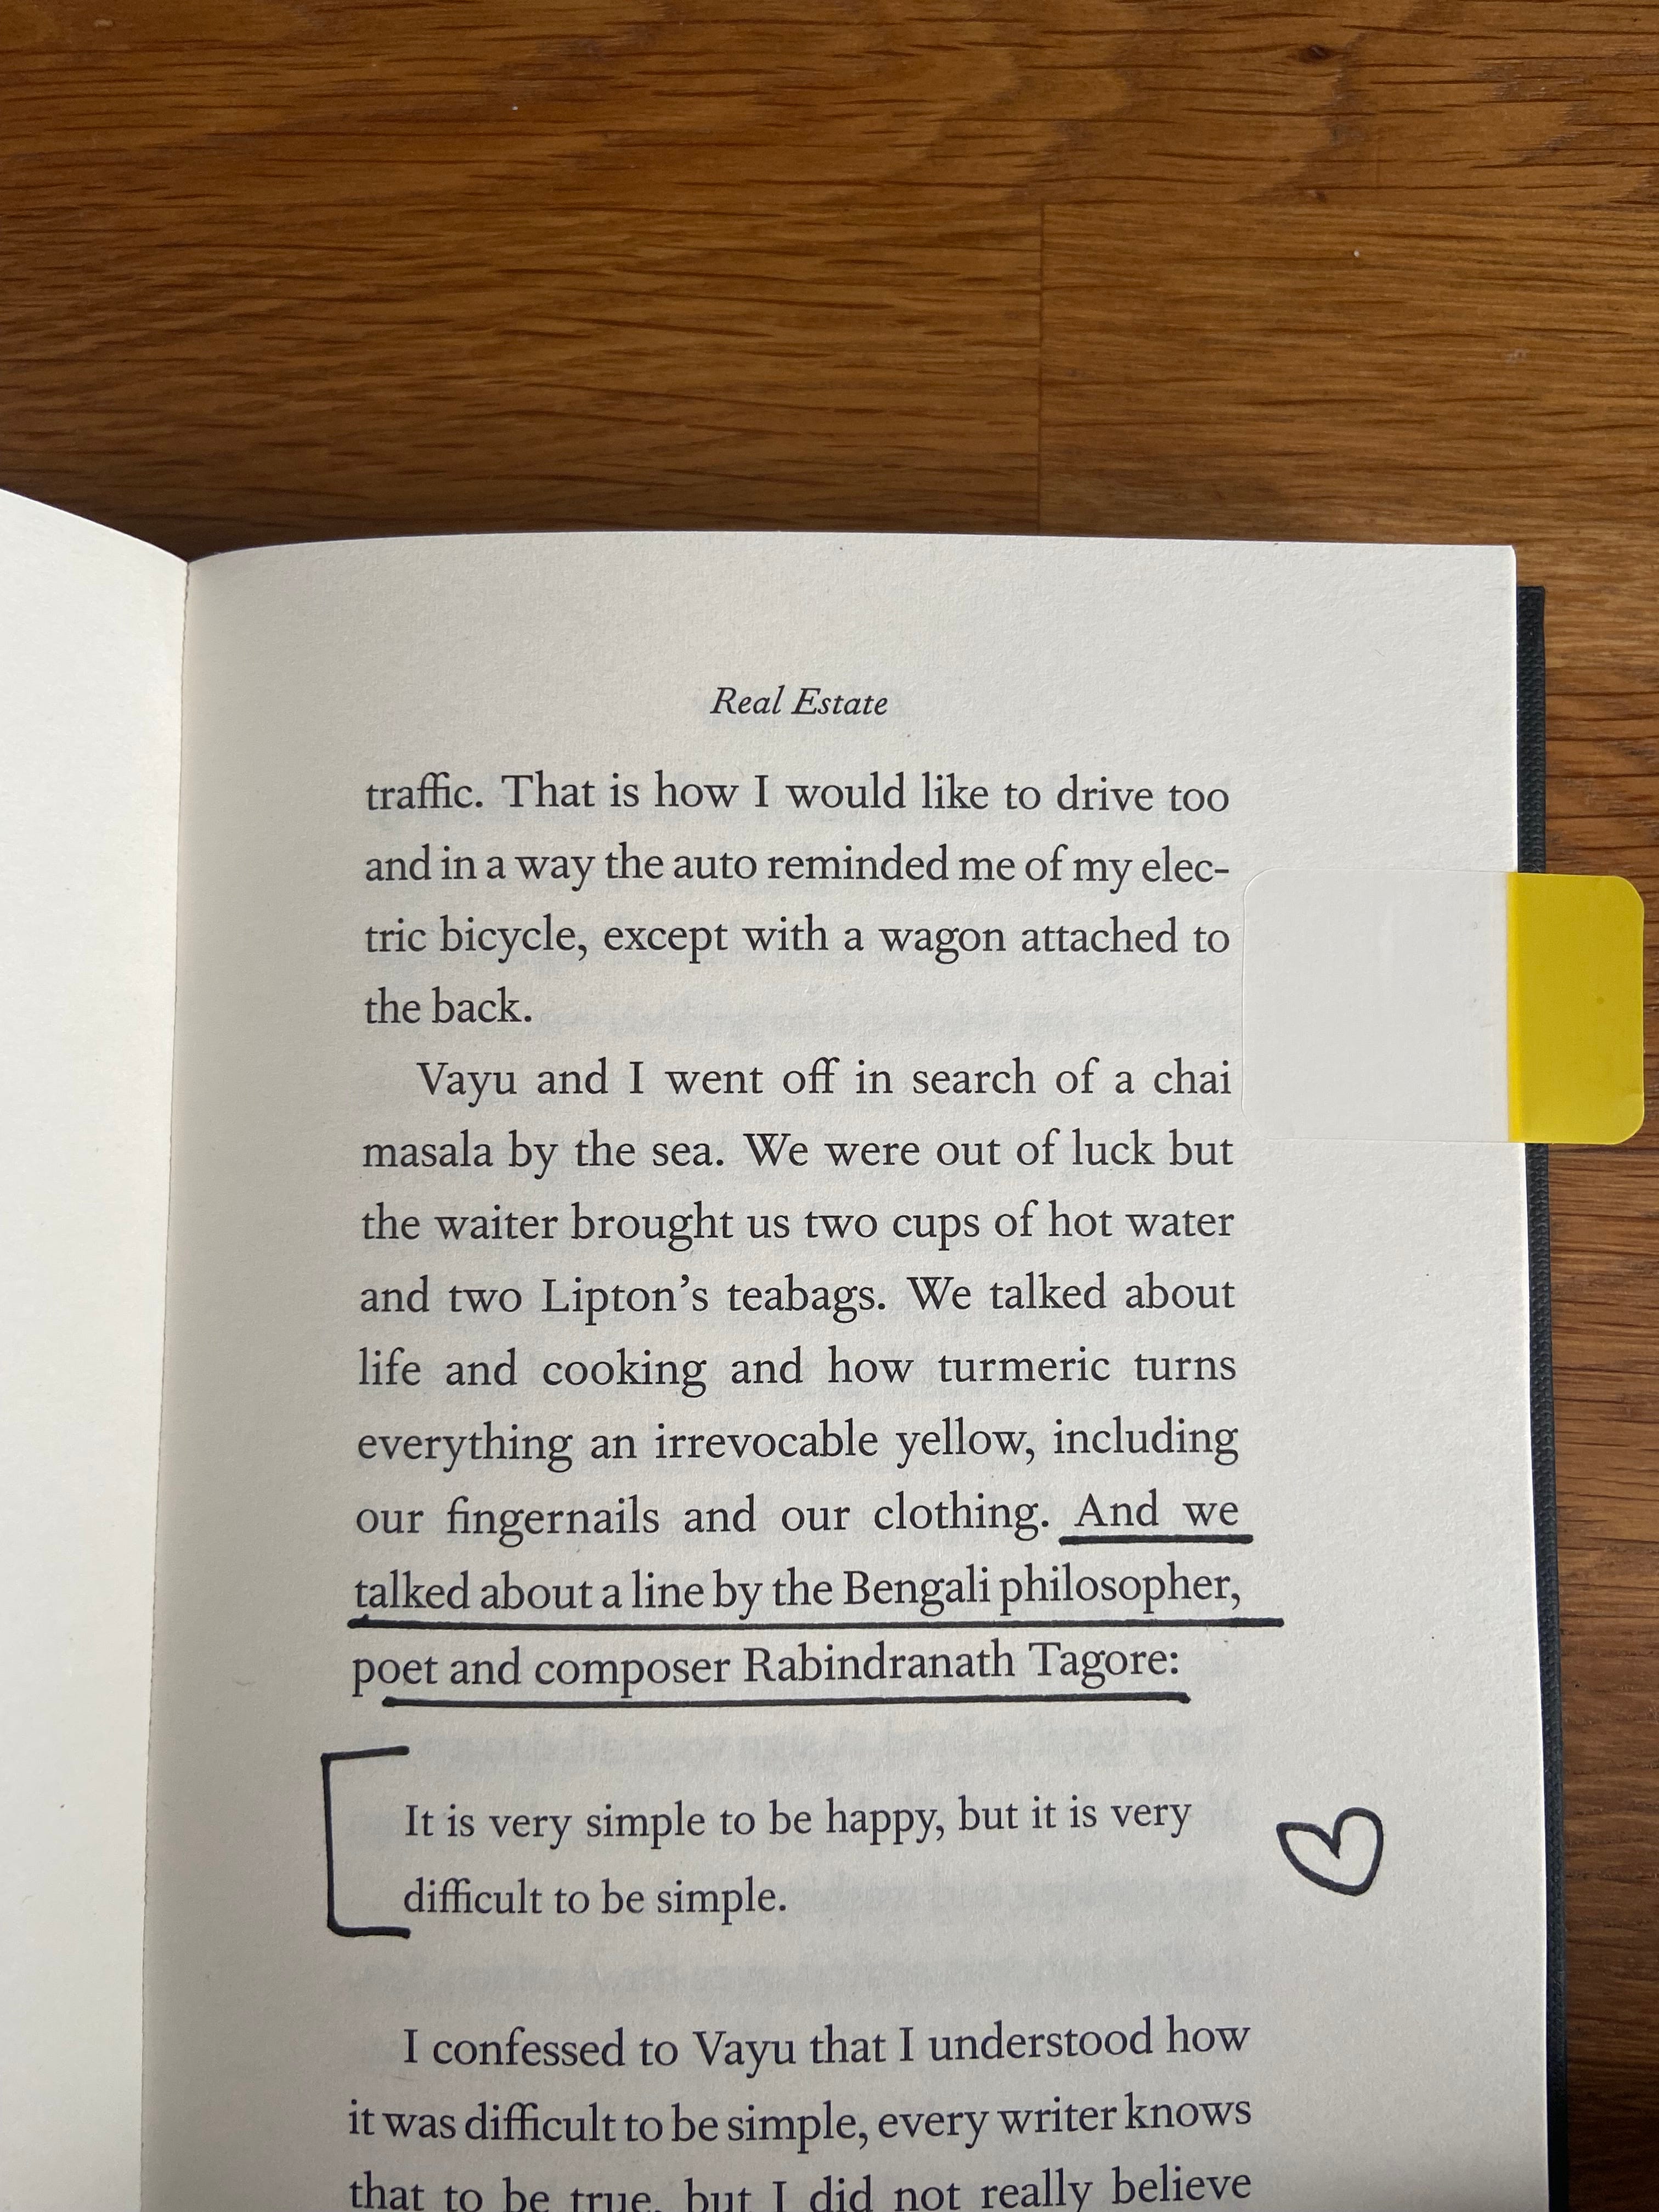 Real Estate
traffic. That is how I would like to drive too
and in a way the auto reminded me of my elec-
tric bicycle, except with a wagon attached to
the back.
Vayu and I went off in search of a chai
masala by the sea. We were out of luck but
the waiter brought us two cups of hot water
and two Lipton’s teabags. We talked about
life and cooking and how turmeric turns
everything an irrevocable yellow, including
our fingernails and our clothing. And we
talked about a line by the Bengali philosopher,
poet and composer Rabindranath Tagore:
It is very simple to be happy, but it is very
difficult to be simple.
I confessed to Vayu that I understood how
it was difficult to be simple, every writer knows
that to be true, but I did not really believe